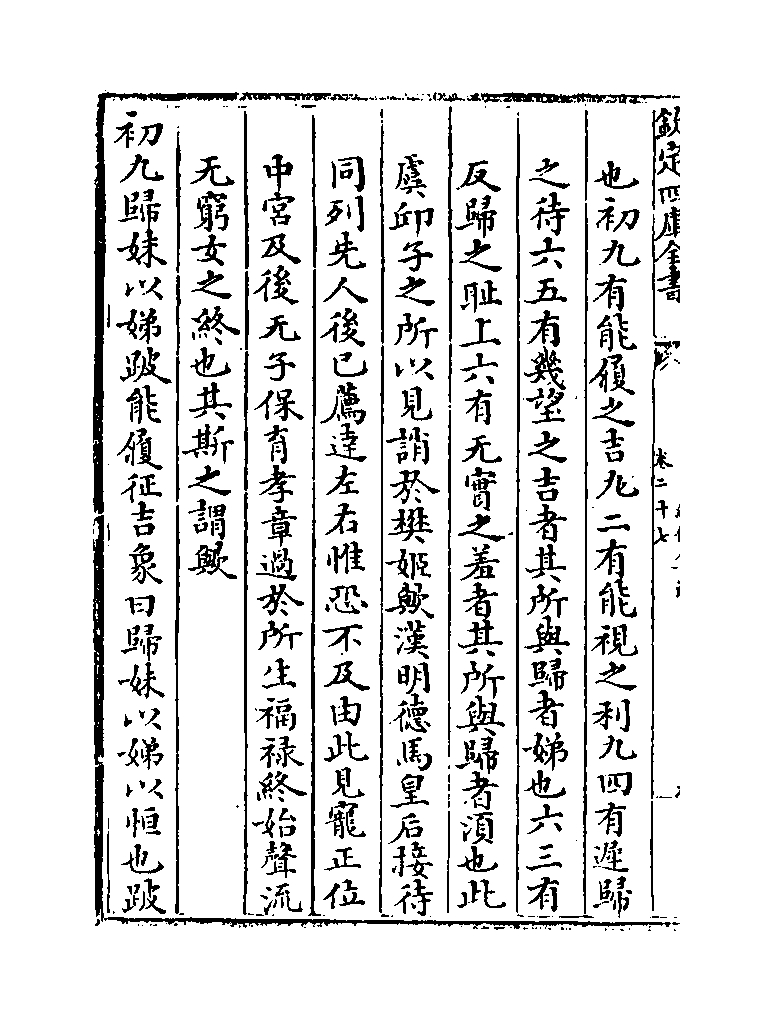 欽定四庫全書
卷二十七
也初九有能履之吉九二有能視之利九四有遲歸
之待六五有幾望之吉者其所與歸者娣也六三有
反歸之恥上六有无實之羞者其所與歸者湏也此
虞卭子之所以見誚於樊姬歟漢明德馬皇后接待
同列先人後已薦達左右惟恐不及由此見寵正位
中宮及後无子保育孝章過於所生福禄終始聲流
无窮女之終也其斯之謂歟
初九歸妹以娣跛能履征吉象曰歸妹以娣以恒也跛